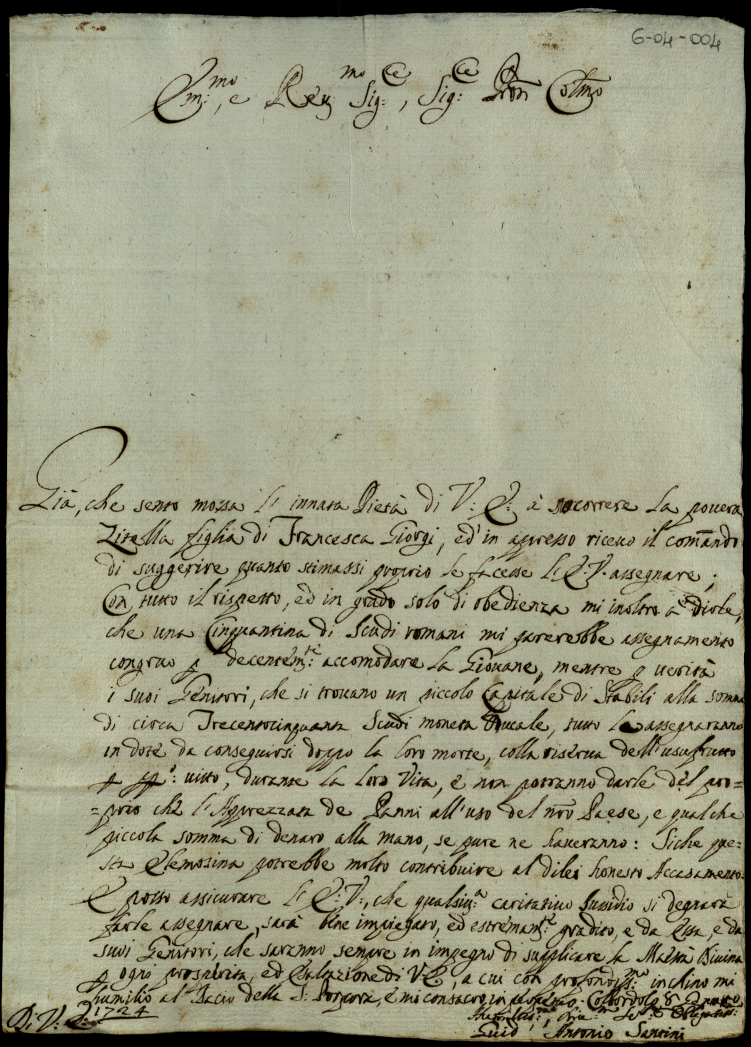 6-04-004
Em:mo, e Reu:mo Sig:re, Sig:re Pron Colmo
Già, che sento mossa l'innata Pietà di V: E: à soccorrere la pouera
Zitella figlia di Francesca Giorgi, ed in appresso riceuo il comãndo
di suggerire quanto stimassi proprio le facesse l'E:V: assegnare;
Con tutto il rispetto, ed in grado solo di obedienza mi inoltro a dirle,
che una Cinquantina di Scudi romani mi parerebbe assegnamento
congruo p decentem:te accomodare la Giouane, mentre p uerità
i suoi Genitori, che si trouano un piccolo Capitale di Stabili alla somma
di circa Trecentocinquanta Scudi moneta Ducale, tutto le assegnaranno
in dote da conseguirsi doppo la loro morte, colla riserua dell'usufrutto
uitto, durante la loro Vita, e non potranno darle del pro=
=prio chè l'Apprezzata de Panni all'uso del nrõ Paese, e qualche
piccola somma di denaro alla mano, se pure ne haueranno: Siche que=
sta Elemosina potrebbe molto contribuire al dilei honesto Accasamento:
E posso assicurare l'E:V:, che qualsiu:a caritatiuo sussidio si degnarà
farle assegnare, sarà bene impiegato, ed estremam:te gradito, e da Essa, e da
suoi Genitori, che saranno sempre in impegno di supplicare la Maestà Diuina
p ogni prosperità, ed Esaltazione di V:E:, a cui con profondiss:mo inchino mi
humilio al Bacio della S: Porpora, e mi consacro
Di V: E: 1724
Guid' Antonio Santini